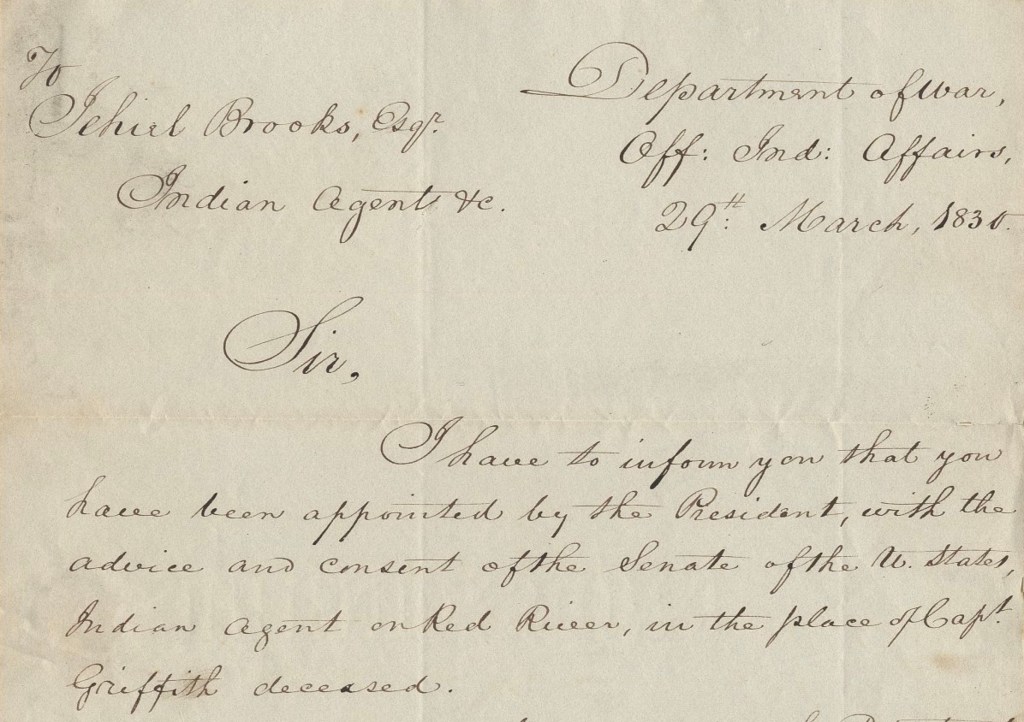 To
Jehiel Brooks, Esqr.
Indian Agent &c.
Department of war,
Off: Ind: Affairs,
29th: March, 1830.
Sir,
I have to inform you that you
have been appointed by the President, with the
advice and consent of the Senate of the U. States,
Indian Agent on Red River, in the place of Capt.
Griffith deceased.